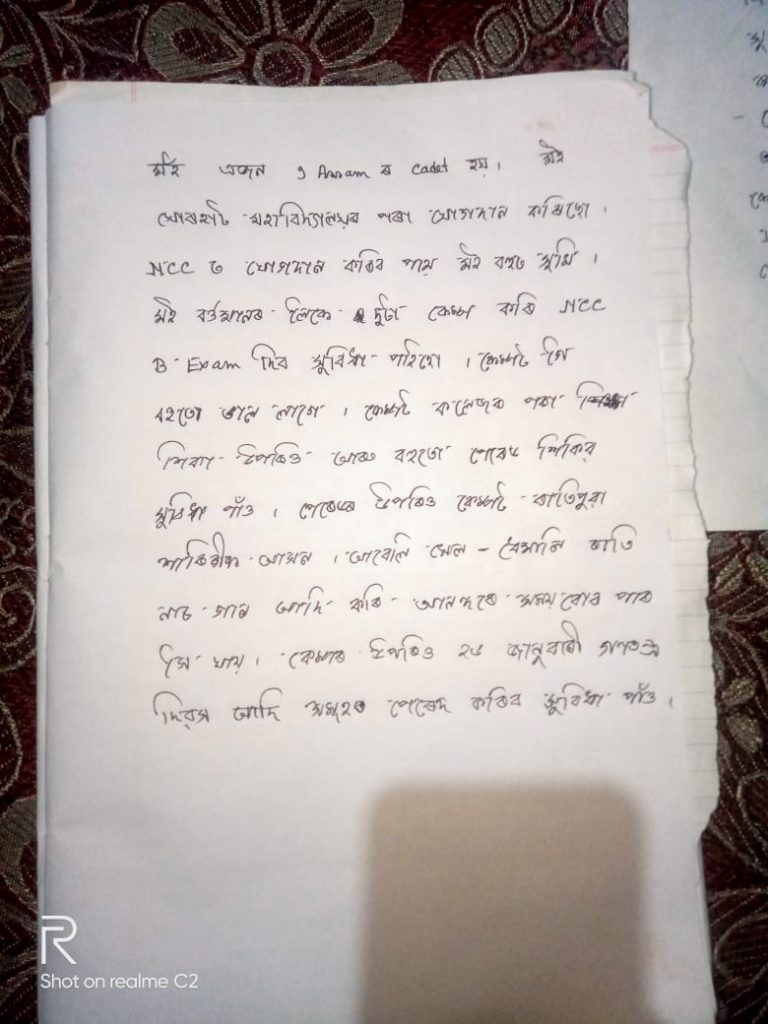 মই এজন 1 Assam ৰ Cadet হয়। মই
যোৰহাট মহাবিদ্যালয়ৰ পৰা যোগদান কৰিছো।
NCC ত যোগদান কৰিব পায় মই বহুত সুখি।
মই বৰ্তমানৰ লৈকে দুটা কেম্প কৰি NCC
B Exam দিব সুবিধা পাইছো। কেম্পট গৈ
বহুতো ভাল লাগে। কেম্পট কলেজৰ পৰা
শিকা উপৰিও আৰু বহুতো পেৰেড শিকিব
সুবিধা পাঁও। পেৰেডৰ উপৰিও কেম্পট ৰাতিপুৱা
শাৰিৰীক আসন। আবেলি খেল - ধেমালি ৰাতি
নাচ গান আদি কৰি আনন্দৰে সময়বোৰ পাৰ
হৈ যায়। কেম্পৰ উপৰিও ২৬ জানুৱাৰী গণতন্ত্ৰ
দিৱস আদি সমূহত পেৰেদ কৰিব সুবিধা পাঁও।
Shot on realme C2